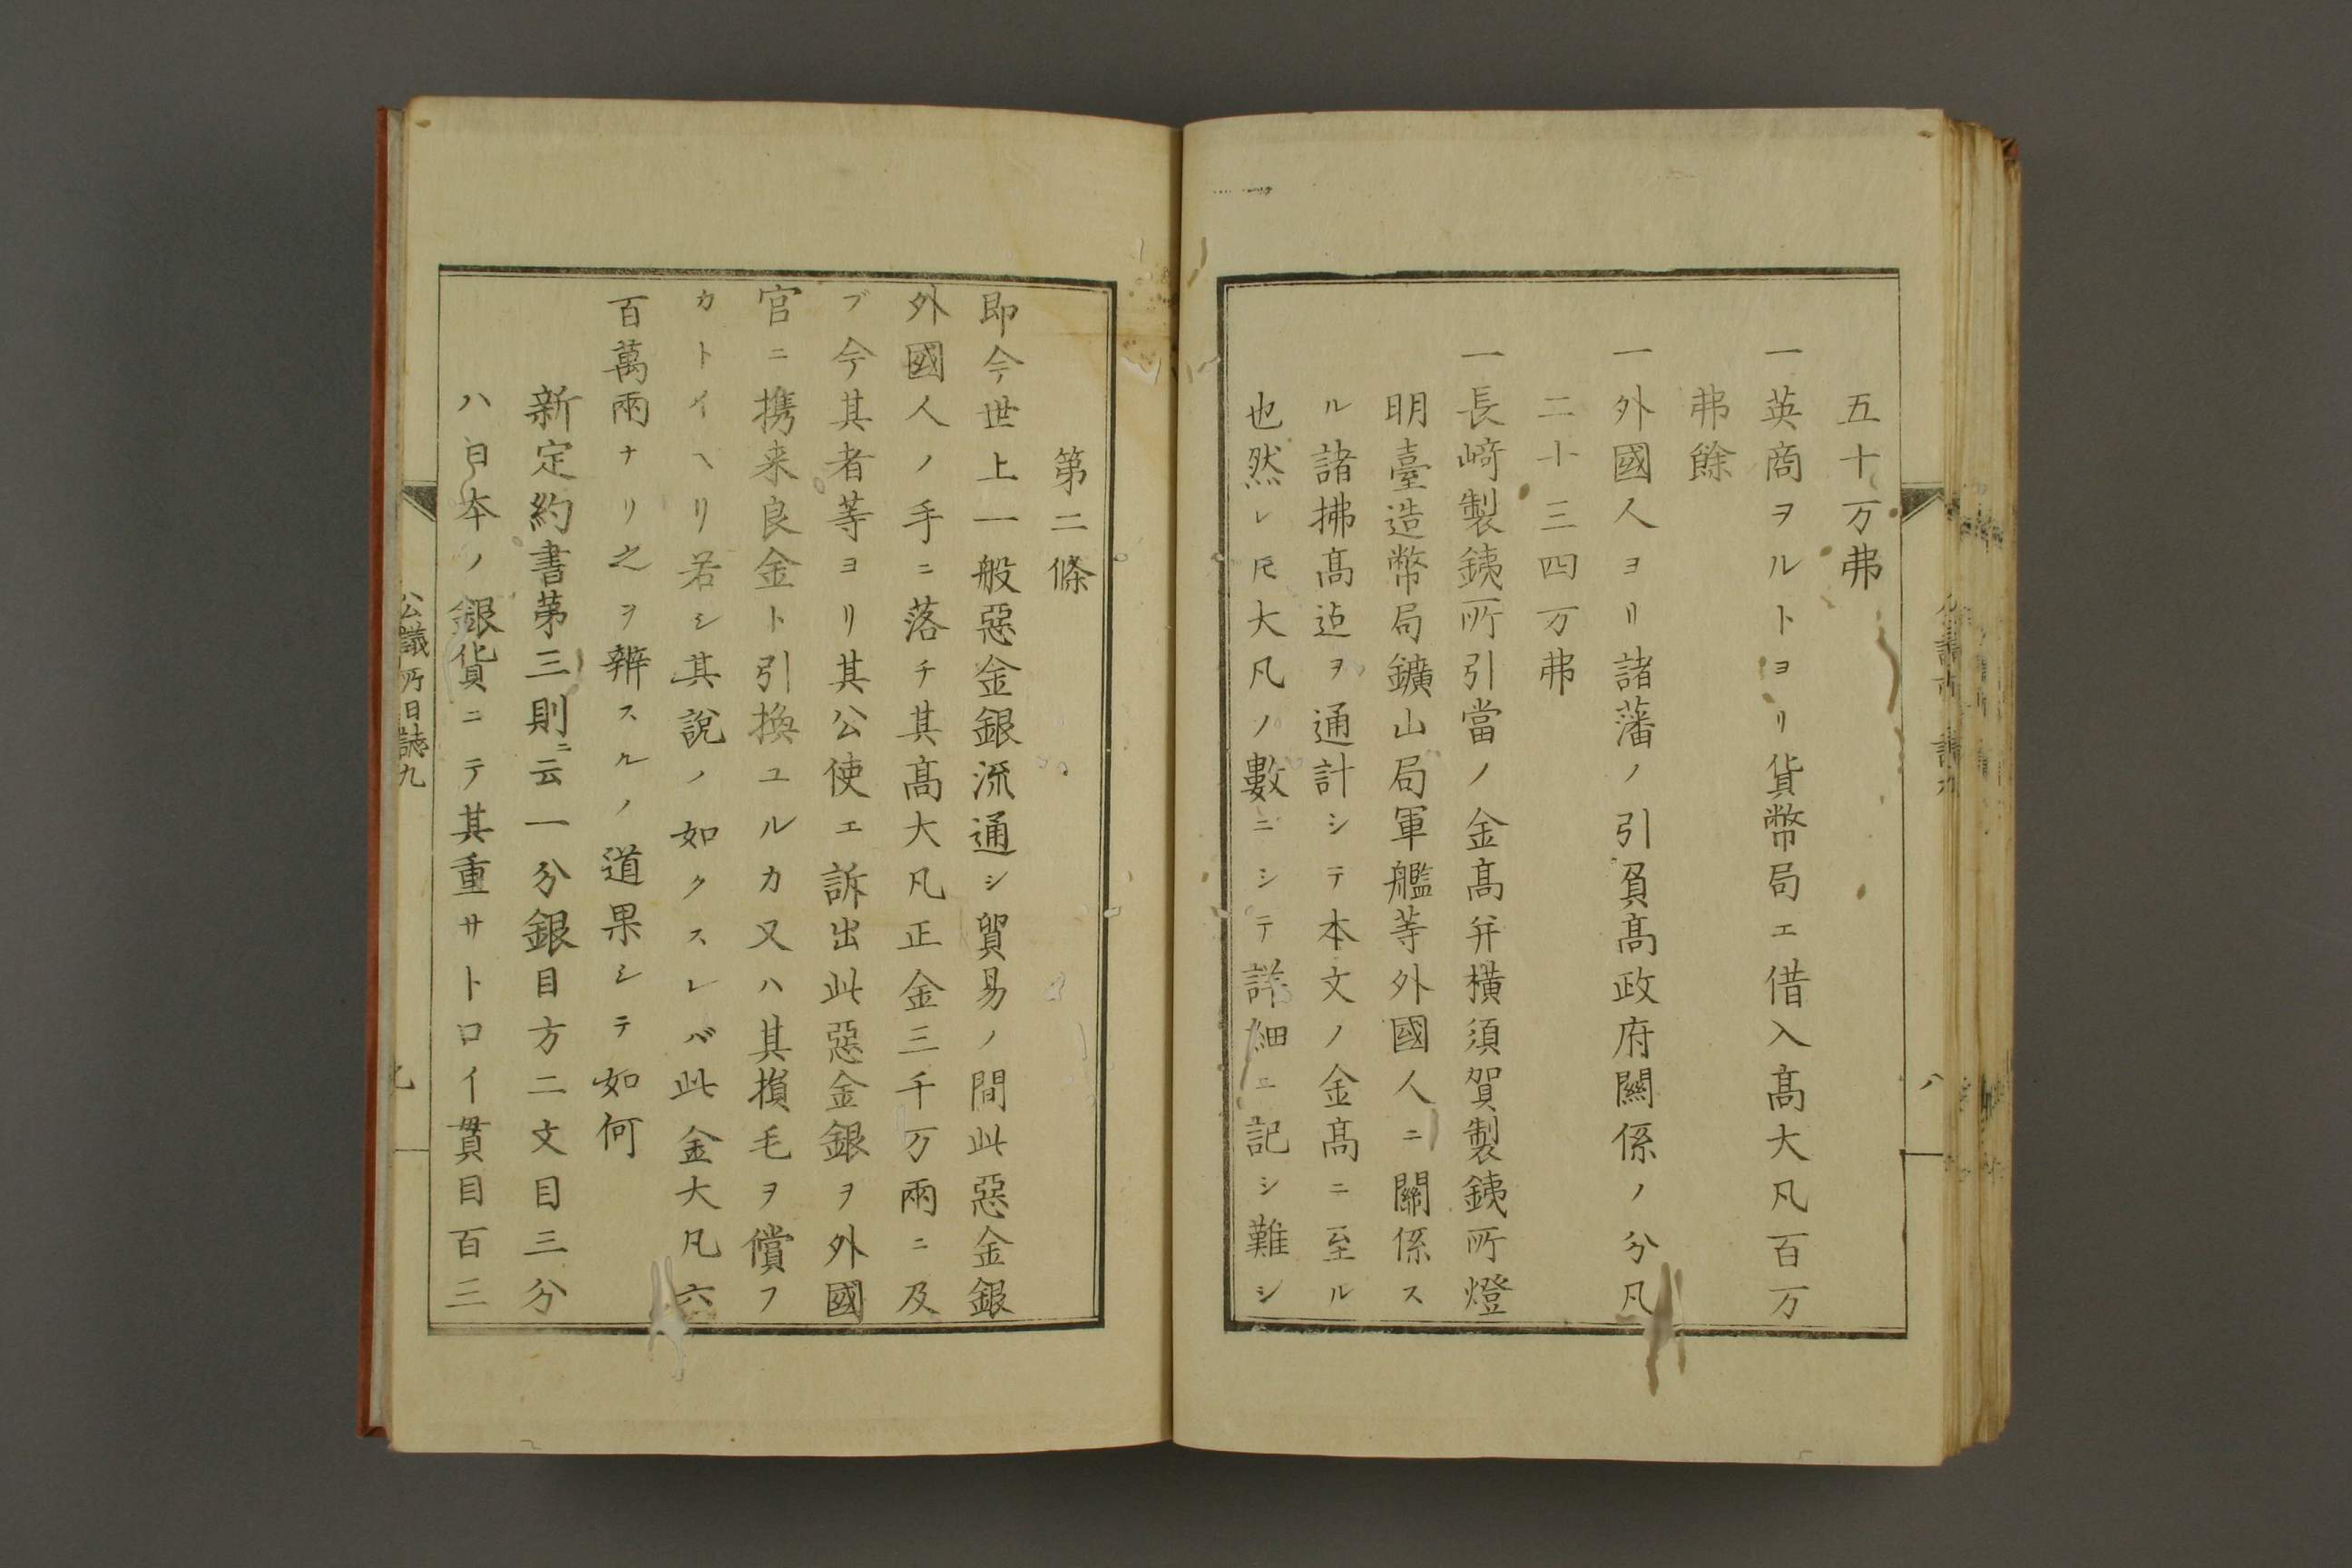 五十万弗
一英商ヲルトヨリ貨幣局エ借入髙大凡百万
弗餘
一外國人ヨリ諸藩ノ引負髙政府關係ノ分凡
二十三四万弗
一長﨑製銕所引當ノ金髙并横須賀製銕所燈
明臺造幣局鑛山局軍艦等外國人ニ關係ス
ル諸拂髙迠ヲ通計シテ本文ノ金髙ニ至ル
也然レ𪜈大凡ノ數ニシテ詳細ニ記シ難シ
八
第二條
即今世上一般惡金銀流通シ貿易ノ間此惡金銀
外國人ノ手ニ落チ其髙大凡正金三千万兩ニ及
ブ今其者等ヨリ其公使エ訴出此惡金銀ヲ外國
官ニ携来良金ト引換ユルカ又ハ其損毛ヲ償フ
カトイヘリ若シ其說ノ如クスレバ此金大凡六
百萬兩ナリ之ヲ辨スルノ道果シテ如何
新定約書第三則ニ云一分銀目方二文目三分
ハ日本ノ銀貨ニテ其重サトロイ貫目百三
公議所日誌九
九